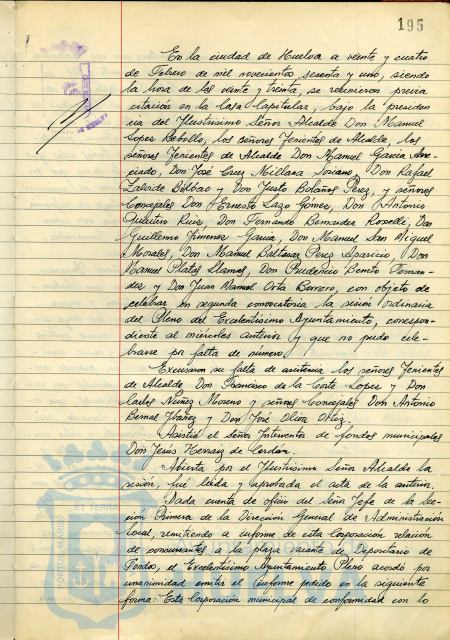 195
En la ciudad de Huelva a veinte y cuatro
de Febrero de mil novecientos sesenta y uno, siendo
la hora de las veinte y treinta, se reunieron previa
citación en la Casa Capitular, bajo la presiden
cia del Ilustrisimo Señor Alcalde Don Manuel
Lopez Rebollo, los señores Tenientes de Alcalde, los
señores Tenientes de Alcalde Don Manuel Garcia
Don José Cruz Millana Soriano, Don Rafael
Bilbao y Don Justo Bolaños Perez, y señores
Concejales Don Ernesto Lazo Gomez, Don Antonio
Ruiz, Don Fernando Bermudez Roselli, Don
Guillermo Jimenez Garcia, Don Manuel San Miguel
Morales, Don Manuel Baltasar Perez Aparicio, Don
Manuel Platas Llamas, Don Prudencio Benito Fernan-
dez y Don Juan Manuel Orta Borrero, con objeto de
celebrar en segunda convocatoria la sesión ordinaria
del Pleno del Excelentisimo Ayuntamiento, correspon-
diente al miércoles anterior y que no pudo cele-
brarse por falta de numero.
Excusaron su falta de asistencia los señores Tenientes
de Alcalde Don Francisco de la Corte Lopez y Don
Carlos Nuñez Moreno y señores Concejales Don Antonio
Bernal Ibañez y Don José Oliva Ortiz.
Asistió el señor Interventor de fondos municipales
Don Jesus Hernaiz de Cerdan.
Abierta por el Ilustrisimo Señor Alcalde la
sesión, fué leida y aprobada el acta de la anterior.
Dada cuenta de oficio del Señor Jefe de la Sec-
cion Primera de la Dirección General de Administración
Local, remitiendo a informe de esta Corporación relación
de concursantes a la plaza vacante de Depositario de
Fondos, el Excelentisimo Ayuntamiento Pleno acordó por
unanimidad emitir el informe pedido en la siguiente
forma: Esta Corporación municipal de conformidad con lo